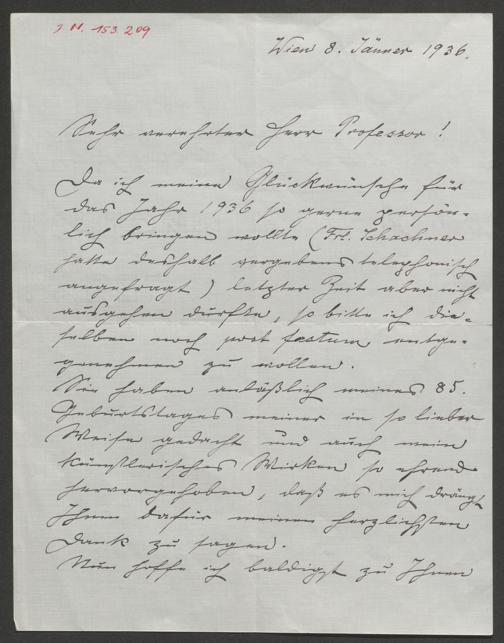 J. N. 153.209
Wien 8. Jänner 1936.
Sehr verehrter Herr Professor!
Da ich meine Glückwünsche für
das Jahr 1936 so gerne persön-
lich bringen wollte (Frl. Schachner
hatte deshalb vergebens telephonisch
angefragt) letzter Zeit aber nicht
ausgehen durfte, so bitte ich die-
selben noch post festum entge-
gennehmen zu wollen.
Sie haben anläßlich meines 85.
Geburtstages meiner in so lieber
Weise gedacht und auch mein
künstlerisches Wirken so ehrend
hervorgehoben, daß es mich drängt
Ihnen dafür meinen herzlichsten
Dank zu sagen.
Nun hoffe ich baldigst zu Ihnen